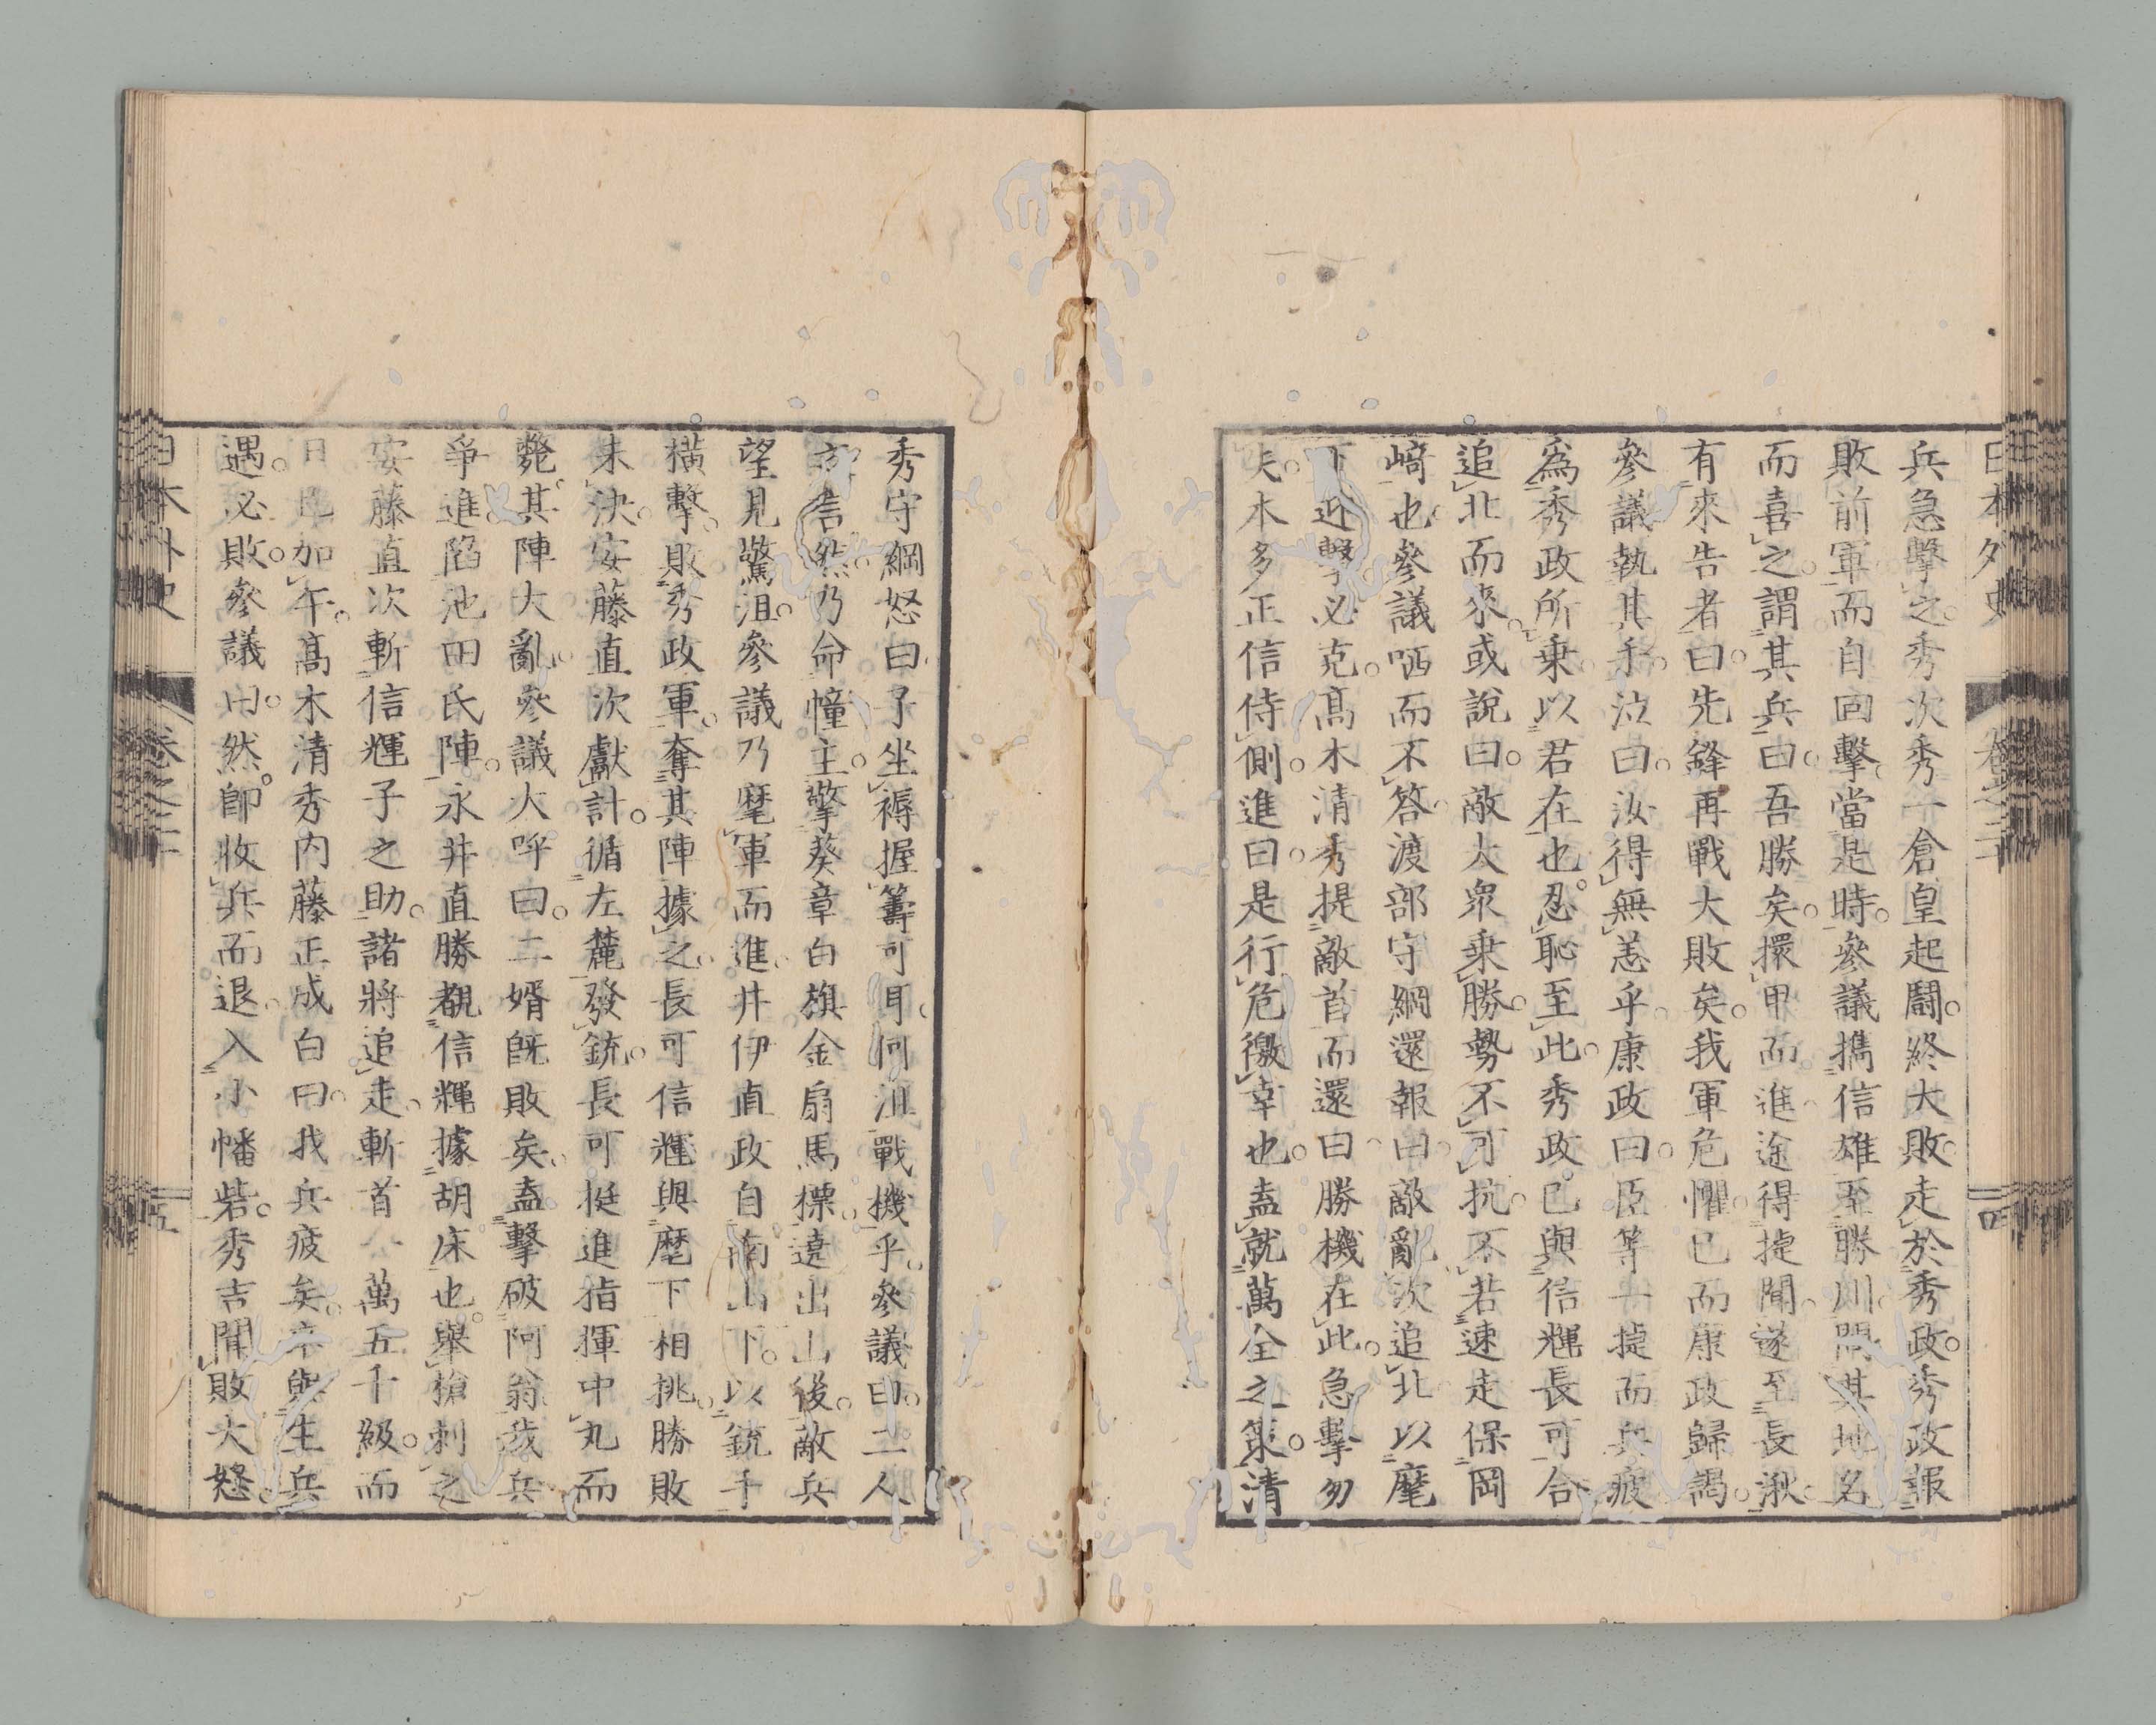 日本外史 卷之二十 四
兵急擊之秀次秀一倉皇起鬪終大敗走於秀政秀政報
敗前軍而自回擊當是時參議擕信雄至勝川問其地名
而喜之謂其兵曰吾勝矣擐甲而進途得捷聞遂至長湫
有來告者曰先鋒再戰大敗矣我軍危懼已而康政歸謁
參議執其手泣曰汝得無恙乎康政曰臣等一捷而兵疲
爲秀政所乗以君在也忍恥至此秀政已與信輝長可合
追北而來或說曰敵大衆乗勝勢不可抗不若速走保岡
﨑也參議哂而不答渡部守綱還報曰敵亂次追北以麾
下近擊必克髙木清秀提敵首而還曰勝機在此急擊勿
失本多正信侍側進曰是行危徼幸也盍就萬全之策清
秀守綱怒曰子坐褥握籌可耳何沮戰機乎參議曰二人
言然乃命幢主擎葵章白旗金扇馬標遶出山後敵兵
望見驚沮參議乃麾軍而進井伊直政自南山下以銃手
橫擊敗秀政軍奪其陣據之長可信輝與麾下相挑勝敗
未決安藤直次獻計循左麓發銃長可挺進指揮中丸而
斃其陣大亂參議大呼曰二婿旣敗矣盍擊破阿翁我兵
爭進陷池田氏陣永井直勝覩信輝據胡床也舉槍刺之
安藤直次斬信輝子之助諸將追走斬首萬五千級而
日加午髙木清秀内藤正成白曰我兵疲矣卒與生兵
遇必敗參議曰然卽收兵而退入小幡砦秀吉聞敗大怒
日本外史 卷之二十 五